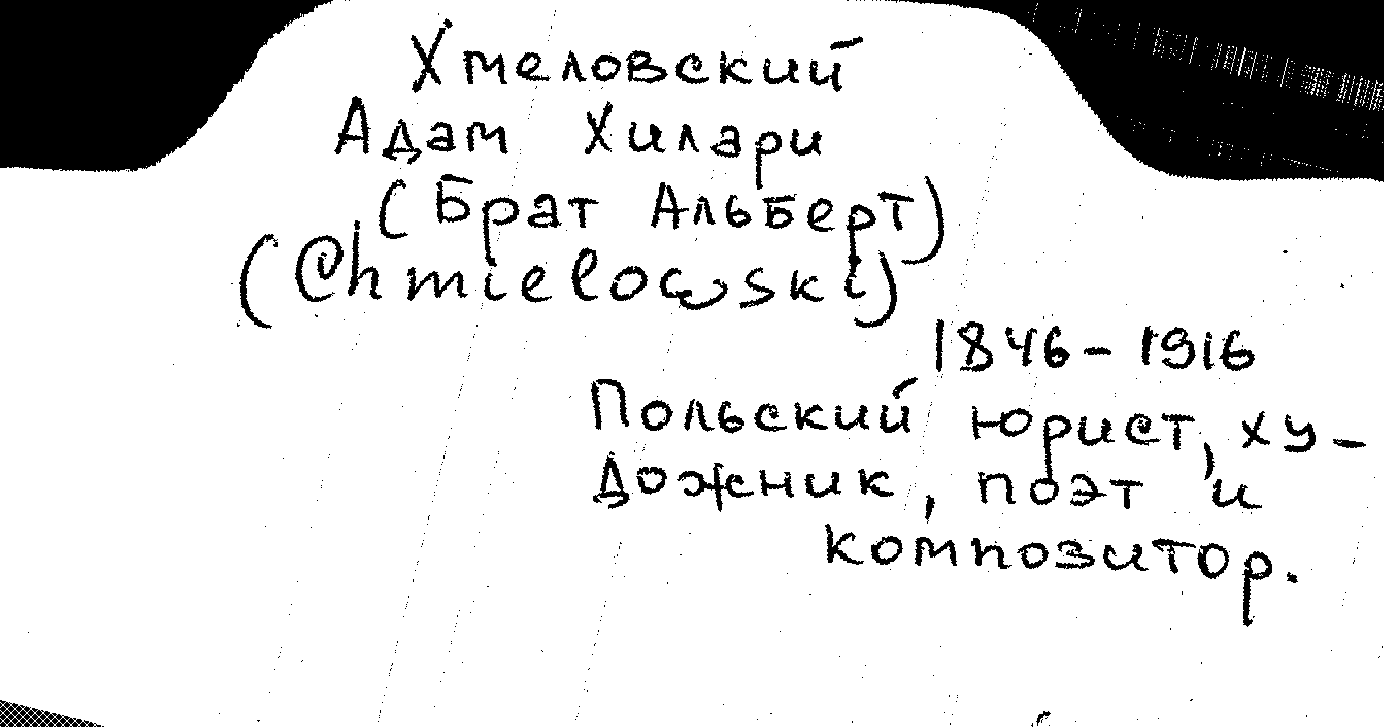 Хмеловский
Адам Хилари
(Брат Альберт)
(Chmielowski)
1846-1916
Польский юрист, ху-
дожник, поэт и
композитор.